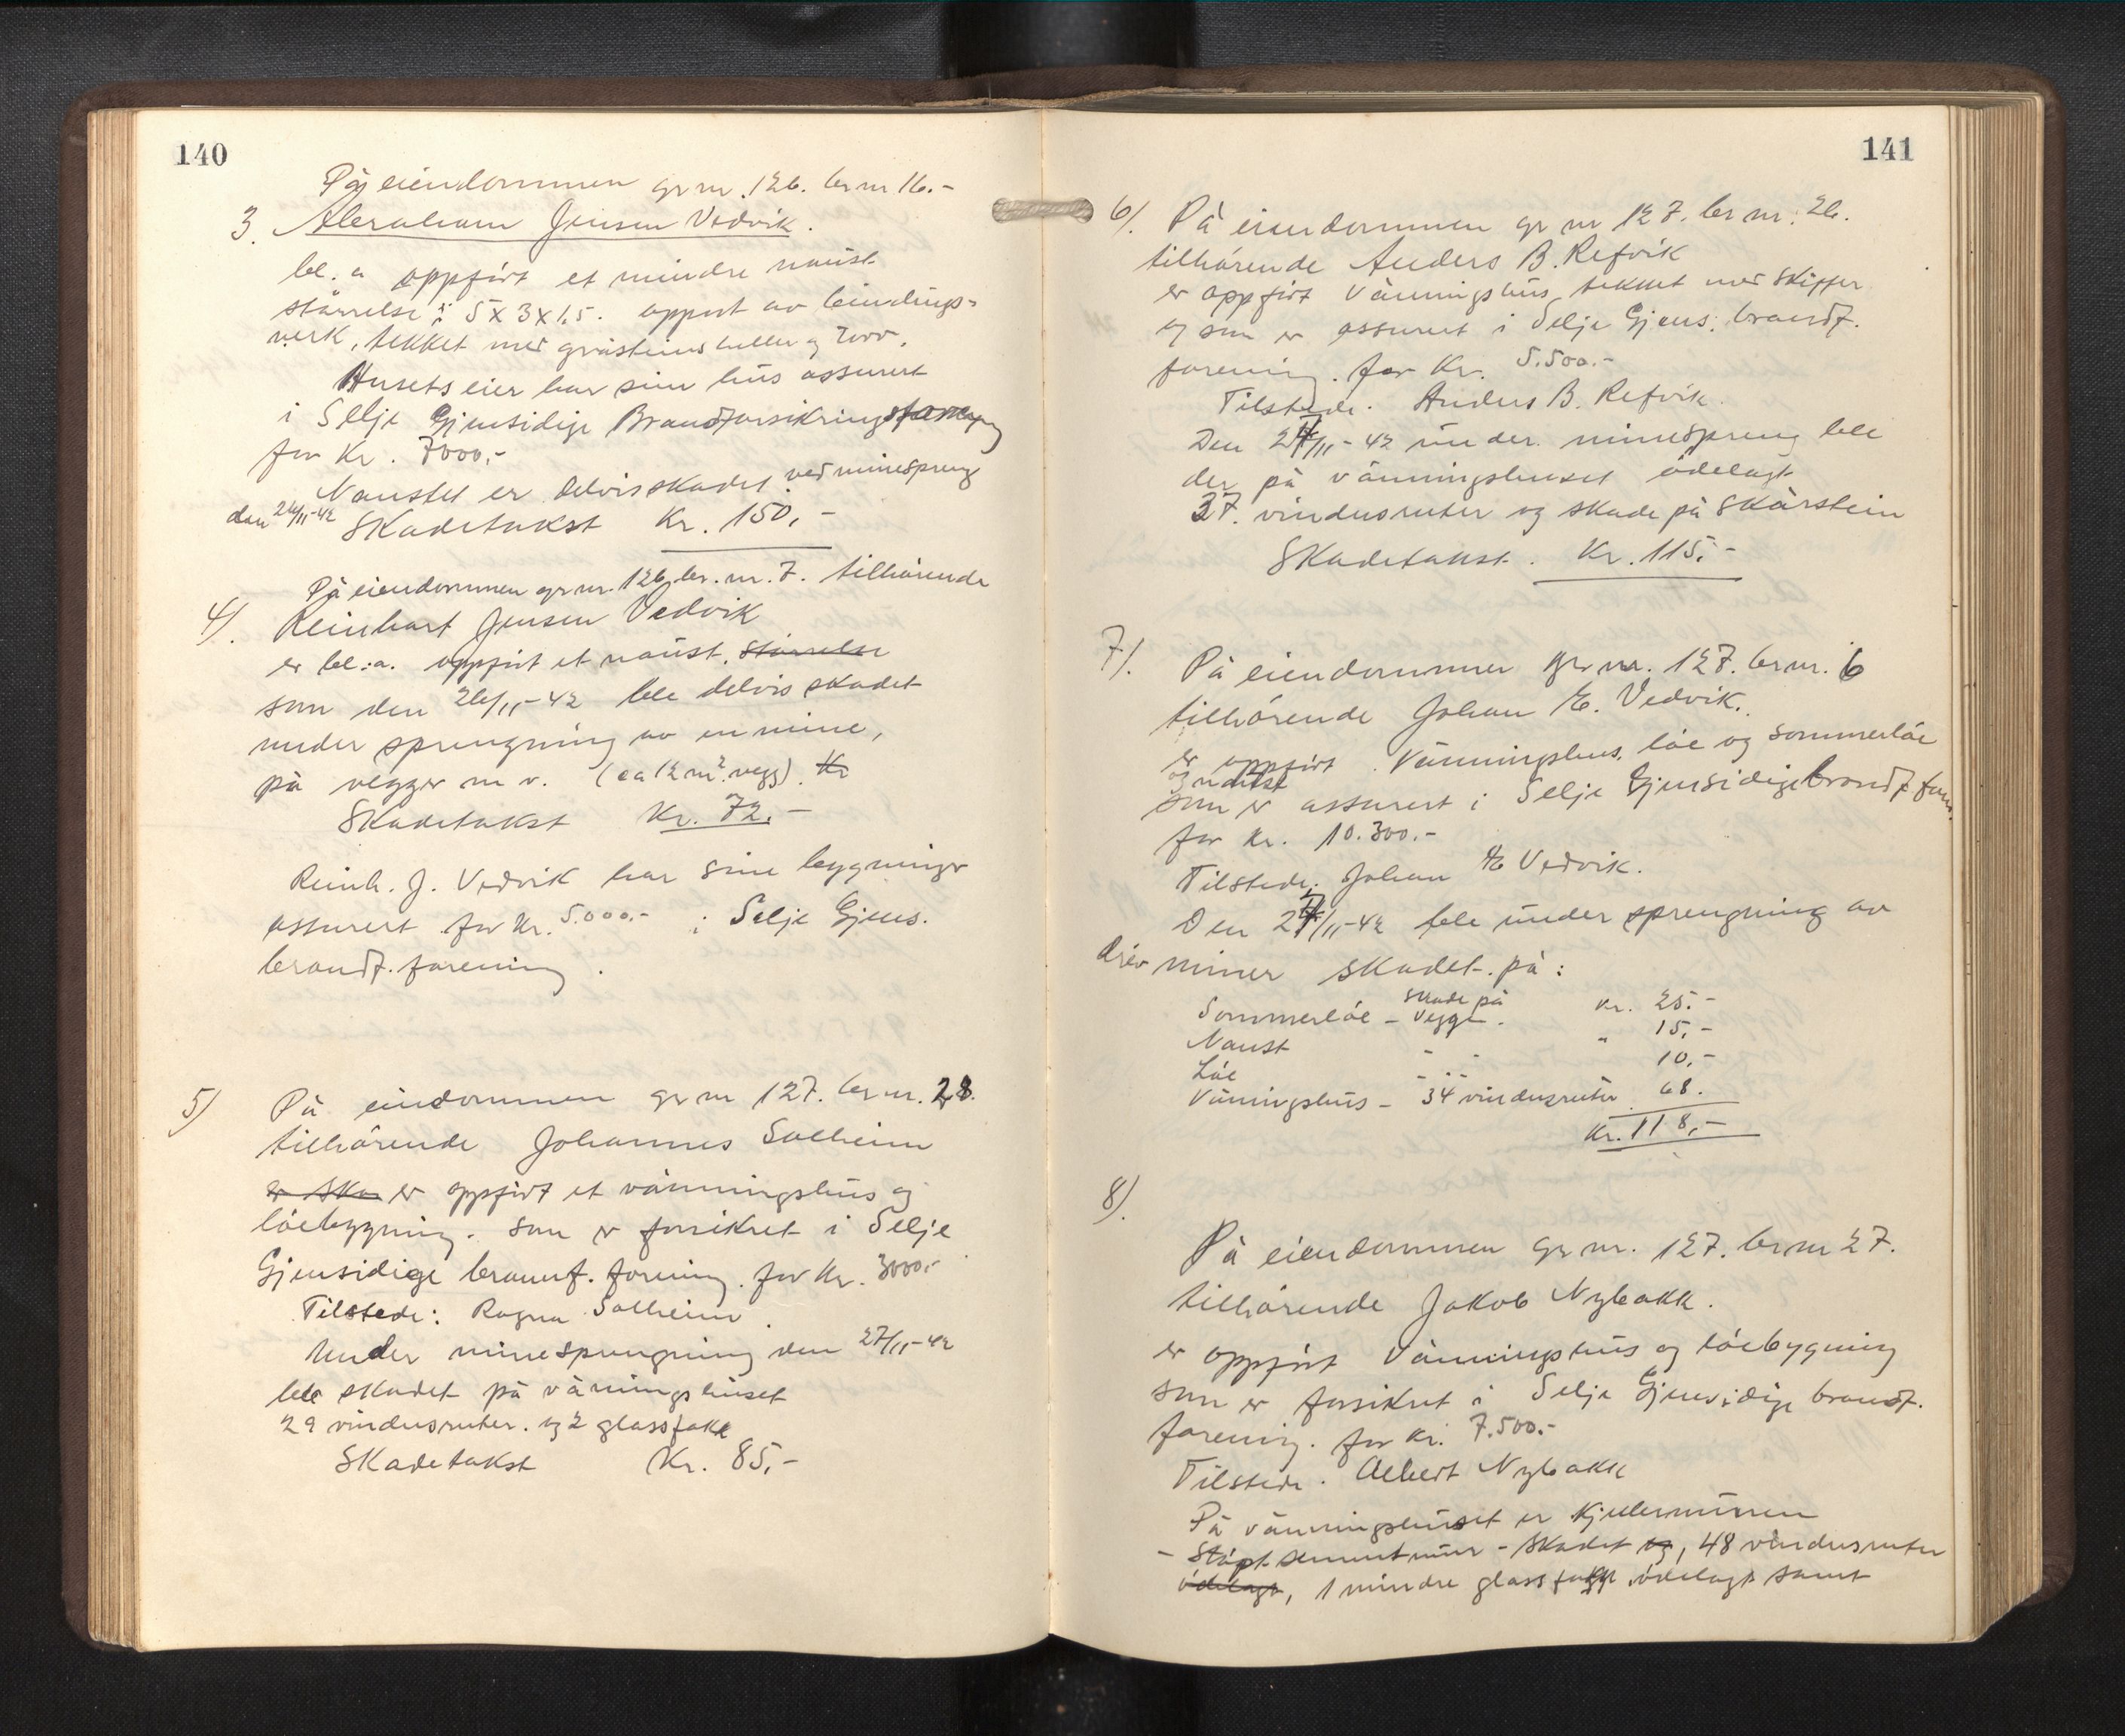 140
På eiendommen gr nr. 126. br nr 16.-
3. Abraham Jensen Vedvik.
bl. a oppført et mindre naust
størrelse: 5 x 3 x 1,5. oppført av bindings-
verk, tekket med gråsteinsheller og
Husets eier har sin hus assurert
i Selje Gjensidige Brandforsikringsforening
for Kr. 7000,-
Naustet er delvis skadet ved minespreng
den 26/11-42 Skadetakst Kr. 150,-
På eiendommen gr nr. 126 br. nr. 7. tilhørende
4). Reinhart Jensen Vedvik
er bl: a. oppført et naust. størrelse
som den 26/11-42 ble delvis skadet
under sprengning av en mine,
på vegger m v. (ca 12 m². vegg). Kr
Skadetakst Kr. 72.-
Reinh. J. Vedvik har sine bygninger
assurert for Kr. 5.000.- i Selje Gjens.
brandf. forening.
5) På eiendommen gr nr 127. br nr. 28.
tilhørende Johannes Solheim
er ska er oppført et våningshus og
løebygning. som er forsikret i Selje
Gjensidige brannf. forening. for Kr. 3000.-
Tilstede: Ragna Solheim.
Under minesprengning den 27/11-42
ble skadet på våningshuset
29 vindusruter. og 2 glasstakk
Skadetakst Kr. 85,-
141
6). På eiendommen gr nr 127. br nr. 26.
tilhørende Anders B. Refvik
er oppført Våningshus, tekket med skiffer
og som er assurert i Selje Gjens. brandf.
forening. for Kr. 5.500.-
Tilstede. Anders B. Refvik.
Den 27/11-42 under. minespreng ble
der på våningshuset ødelagt
37. vindusruter og skade på skårstein
Skadetakst. Kr. 115.-
7). På eiendommen gr nr. 127. br nr. 6
tilhørende Johan E. Vedvik.
er oppført Våningshus, løe og sommerløe
og naust
som er assurert i Selje Gjensidige brandf for.
for Kr. 10.300.-
Tilstede: Johan E Vedvik.
Den 27/11-42 ble under sprengning av
driv miner skadet på:
Sommerløe - skade på vegge. Kr. 25.-
Naust - - " 15,-
Løe - " - 10,-
Våningshus - 34 vindusruter 68.
Kr. 118,-
8).
På eiendommen gr nr. 127. br nr 27.
tilhørende Jakob Nybakk.
er oppført Våningshus og løebygning
som er forsikret i Selje Gjensidige brandf.
forening. for Kr. 7.500.-
Tilstede. Albert Nybakk
På våningshuset er Kjellermuren
- Støpt sementmur - skadet og, 48 vindusruter
ødelagt, 1 mindre ødelagt samt